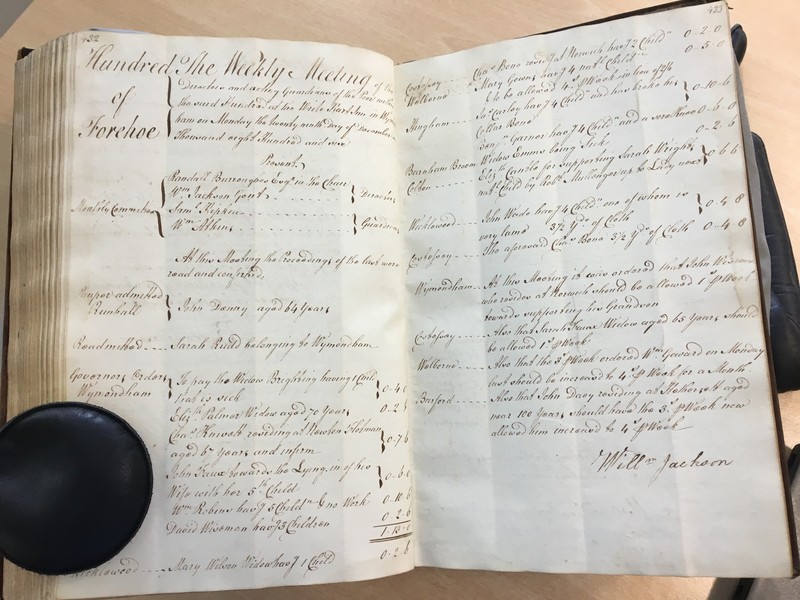 432
Hundred of Forehoe
The Weekly Meeting of the
Directors and acting Guardians of the Poor within
the said Hundred at the White Hart Inn in Wymond
ham on Monday the twenty ninth day of December
Thousand eight Hundred and six
Present
Monthly Committee
Randall Burroughes Esqr. in the Chair
Wm. Jackson Gent.
Directors
Saml.
Wm. Atkins
Guardians
At this Meeting the Proceedings of the last were
read and confirmed
Pauper admitted
Runhall
John Danny aged 64 Years
Readmitted
Sarah Rudd belonging to Wymondham
Governors Orders
Wymondham
To pay the Widow Brightring having 1 Child
that is sick
0-4-0
Elizth. Palmer Widow aged 70 Years
Chas. Knivett residing at Newton Flotman
aged 67 Years and infirm
0-7-6
John Faux towards the Lying in of his
Wife with her 5th Child
0-6-0
Wm. Robins havg. 5 Childn. & no Work
0-10-6
David Wiseman havg. 3 Children
0-2-6
1-13-0
Wicklewood Mary Wilson Widow havg. 1 Child
0-2-6
433
Costessey Chas. Bono residg. at Norwich havg. 2 Childn.
0-2-0
Welborne Mary Gowing havg. 4 natl. Childn.
0-5-0
to be allowed 4s. p Week in lieu of
Hingham Saml. Curley havg. 4 Childn. and has broke his
Collar Bone
0-10-6
Benjn. Garner havg. 4 Childn. and a sore Knee
0-6-0
Barnham Broom Widow Emms being Sick
0-2-6
Colton Elizth. Candle for supporting Sarah Wrights
natl. Child by Robt. up to Lady next
0-6-6
Wicklewood John Wade havg. 4 Childn. one of whom is
very lame 3 1/2 Yds. of Cloth
0-4-8
Costessey The aforesaid Chas. Bono 3 1/2 Yds. of Cloth
0-4-8
Wymondham At this Meeting it was ordered that John Wiseman
who resides at Norwich should be allowed 1s. p Week
towards supporting his Grandson
Costessey Also that Sarah Faux Widow aged 65 Years should
be allowed 1s. p Week
Welborne Also that the 3s. p Week ordered Wm. Goward on Monday
last should be increased to 4s. p Week for a Month
Barford Also that John Davy residing at Hethersett aged
near 100 Years should have the 3s. p Week now
allowed him increased to 4s. p Week
Willm. Jackson